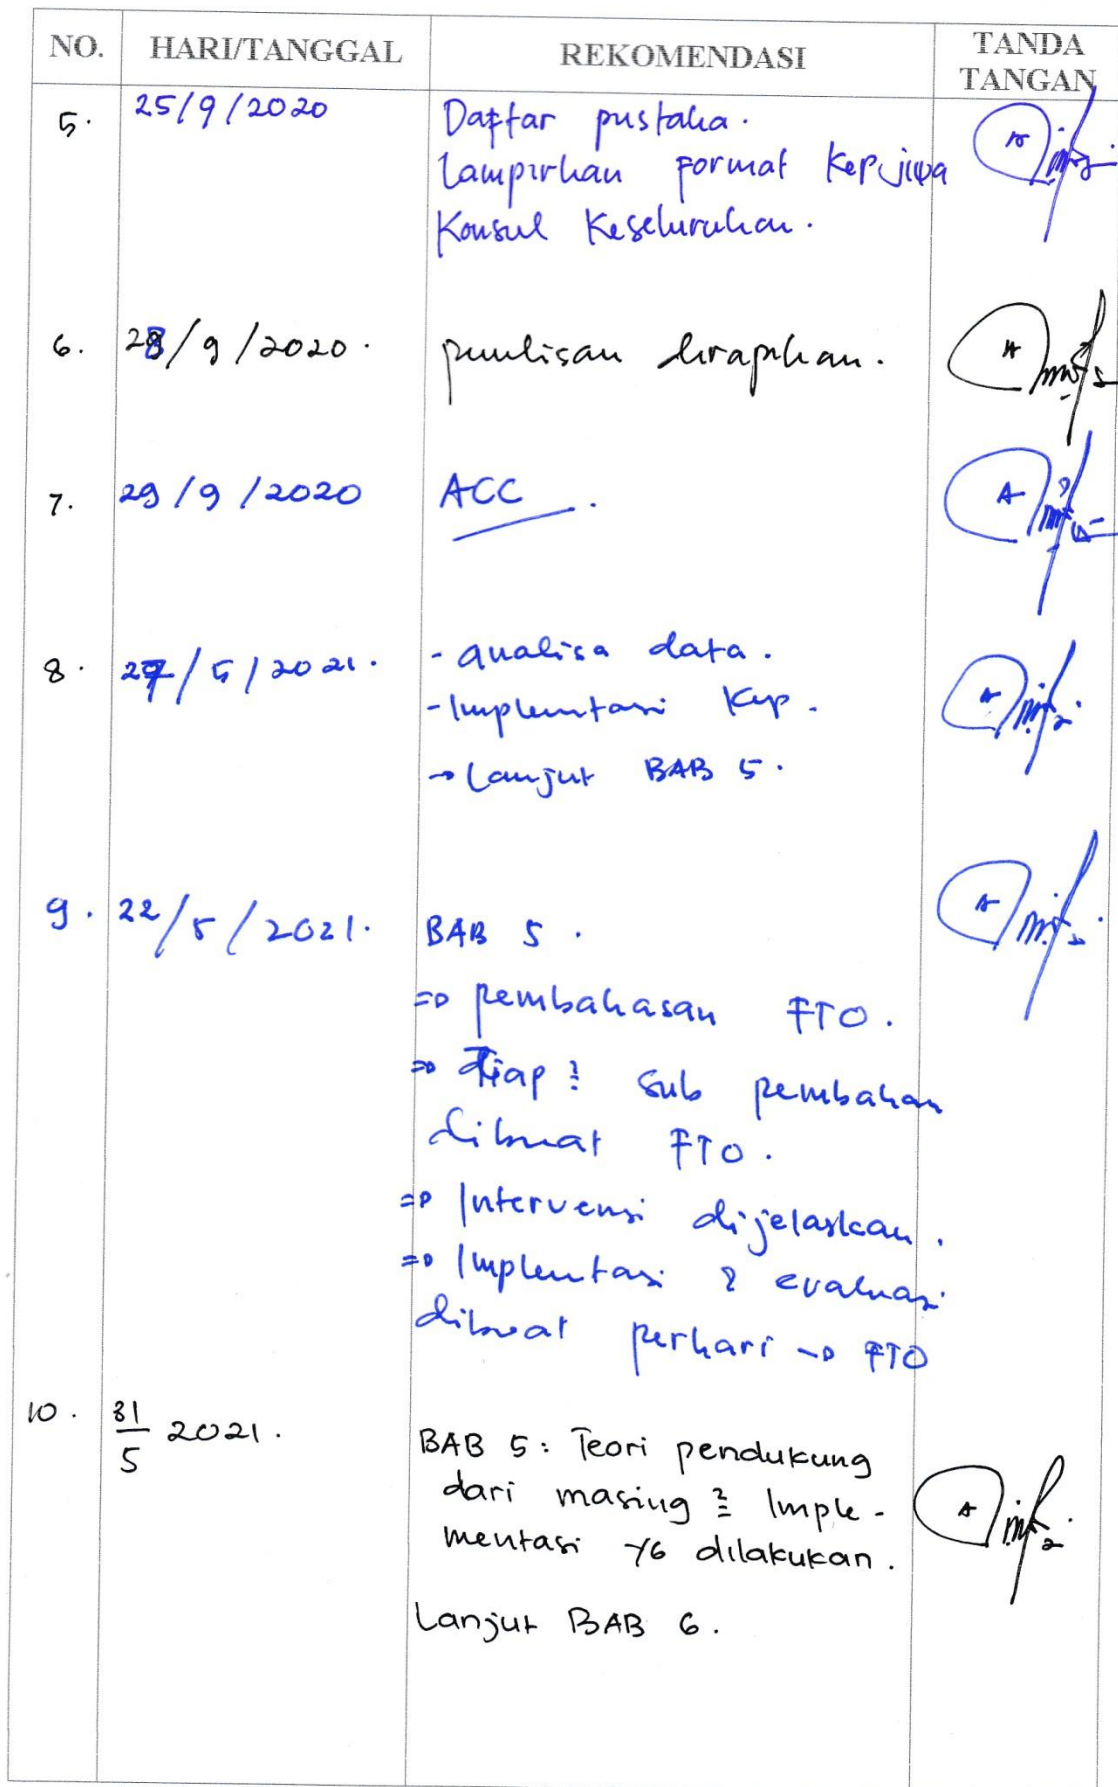 NO. HARI/TANGGAL REKOMENDASI TANDA TANGAN
5. 25/9/2020 Daftar pustaka.
Lampirkan Format Kep jiwa
Konsul Keseluruhan.
6. 28/9/2020. penulisan dirapikan.
7. 29/9/2020 ACC.
8. 27/5/2021. - analisa data.
- Implementasi Kep.
→ Lanjut BAB 5.
9. 22/5/2021. BAB 5.
⇒ pembahasan FTO.
⇒ Tiap 2 sub pembahan
dibuat FTO.
⇒ Intervensi dijelaskan.
⇒ Implentasi & evaluasi
dibuat perhari → FTO
10. 31/5 2021. BAB 5: Teori pendukung
dari masing 2 Imple-
mentasi yg dilakukan.
Lanjut BAB 6.